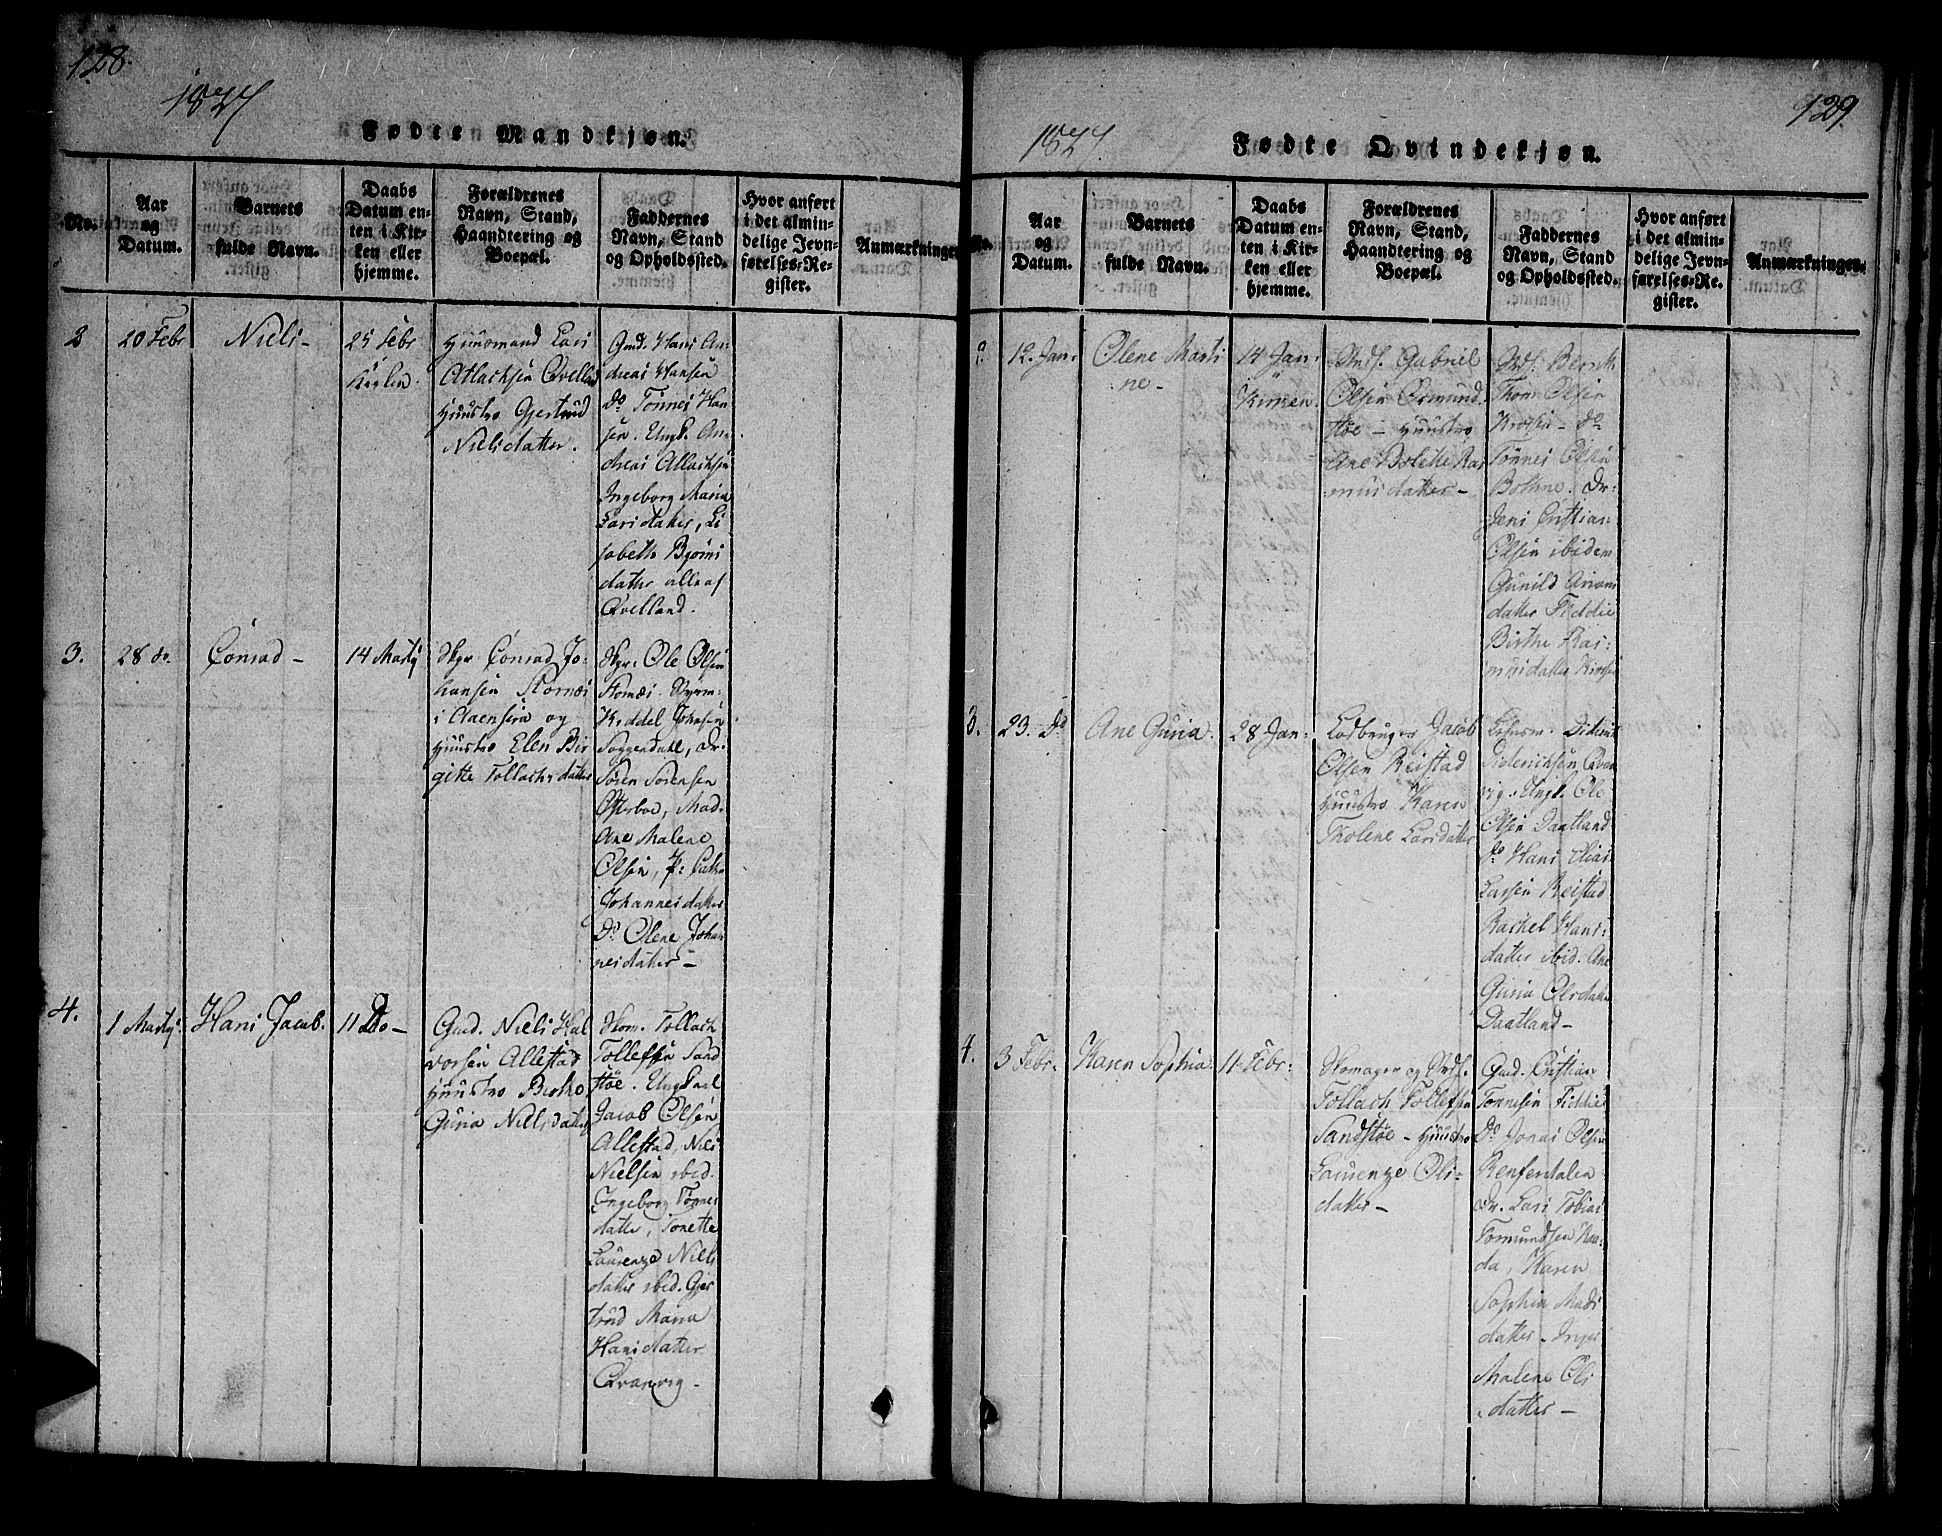 128.
1827
Fødte Mandkjøn.
No.
Aar
og
Datum.
Barnets
fulde Navn.
Daabs
Datum en-
ten i Kir-
ken eller
hjemme.
Forældrenes
Navn, Stand,
Haandtering og
Boepæl.
Faddernes
Navn, Stand
og Opholdssted.
Hvor anført
i det almin-
delige Jevn-
førelses-Re-
gister.
Anmærkninger.
2
20 Febr
Niels -
25 Febr
Kirken.
Huusmand Lars
Atlachsen Qvelland
Huustro Gjertrud
Nielsdatter.
Gmd. Hans An-
dreas Hansen
Do Tönnes Han-
sen. Ungk. An-
dreas Atlachsen
Ingeborg Maria
Larsdatter, Li
sabeth Bjørns
datter alle af
Qvelland.
3.
28 do.
Conrad -
14 Martj
Skpr. Conrad Jo-
hansen Stornæs
i Aaensira og
Huustro Elen Bir
gitte Tollachsdatter
Skpr. Ole Olsen
Stornæs.
Kiddel Johnsen
Soggendahl, Dr.
Sören Sörensen
Osterboe, Mad.
Ane Malene
Olsen, P:
Johannesdatter
Do Olene Johan
nesdatter -
4.
1 Martj.
Hans Jacob.
11 Do -
Gmd. Niels Hal
vorsen Allestad
Huustro Birthe
Guria Nielsdatter
Skom. Tollach
Tollefsen Sand
stöe. Ungkarl
Jacob Olsen
Allestad, Niels
Nielsen ibid.
Ingeborg Tönnes
datter, Tonette
Laurenze Niels
datter ibid. Gjer
trud Maria
Hansdatter
Qvanvig -
129.
1827.
Fødte Qvindekjøn.
No.
Aar
og
Datum.
Barnets
fulde Navn.
Daabs
Datum en-
ten i Kir-
ken eller
hjemme.
Forældrenes
Navn, Stand,
Haandtering og
Boepæl.
Faddernes
Navn, Stand
og Opholdssted.
Hvor anført
i det almin-
delige Jevn-
førelses-Re-
gister.
Anmærkninger.
2.
12. Jan:
Olene Marti
ne -
14 Jan:
Kirken.
Strds. Gabriel
Olsen Ormund-
stöe - Huustro
Ane Bolette Ras
musdatter -
Strds. Bernt
Thom Olsen
Krossen - Do
Tönnes Olsen
Bothne. Dr:
Jens Cristian
Olsen ibidem
Gunild
datter Fiddie
Birthe Ras-
musdatter Krossen
3.
23. Do
Ane Guria.
28 Jan:
Lodbruger Jacob
Olsen Reistad
Huustro Karen
Tholene Larsdatter
Lehnsm. Didrich
Diderichsen Qvan
vig. Ungk. Ole
Olsen Daatland
Do Hans Elias
Larsen Reistad
Rachel Hans-
datter ibid. Ane
Guria Olsdatter
Daatland -
4.
3 Febr.
Karen Sophia.
11 Febr:
Skomager og Strds.
Tollach Tollefsen
Sandstöe - Huustro
Laurenze Ols-
datter -
Gmd. Cristian
Tönnesen Fiddie
Do Jonas Olsen
Renferdalen
Dr. Lars Tobias
Tormundsen Hau-
da, Karen
Sophia Mads
datter. Inger
Malene Ols
datter -